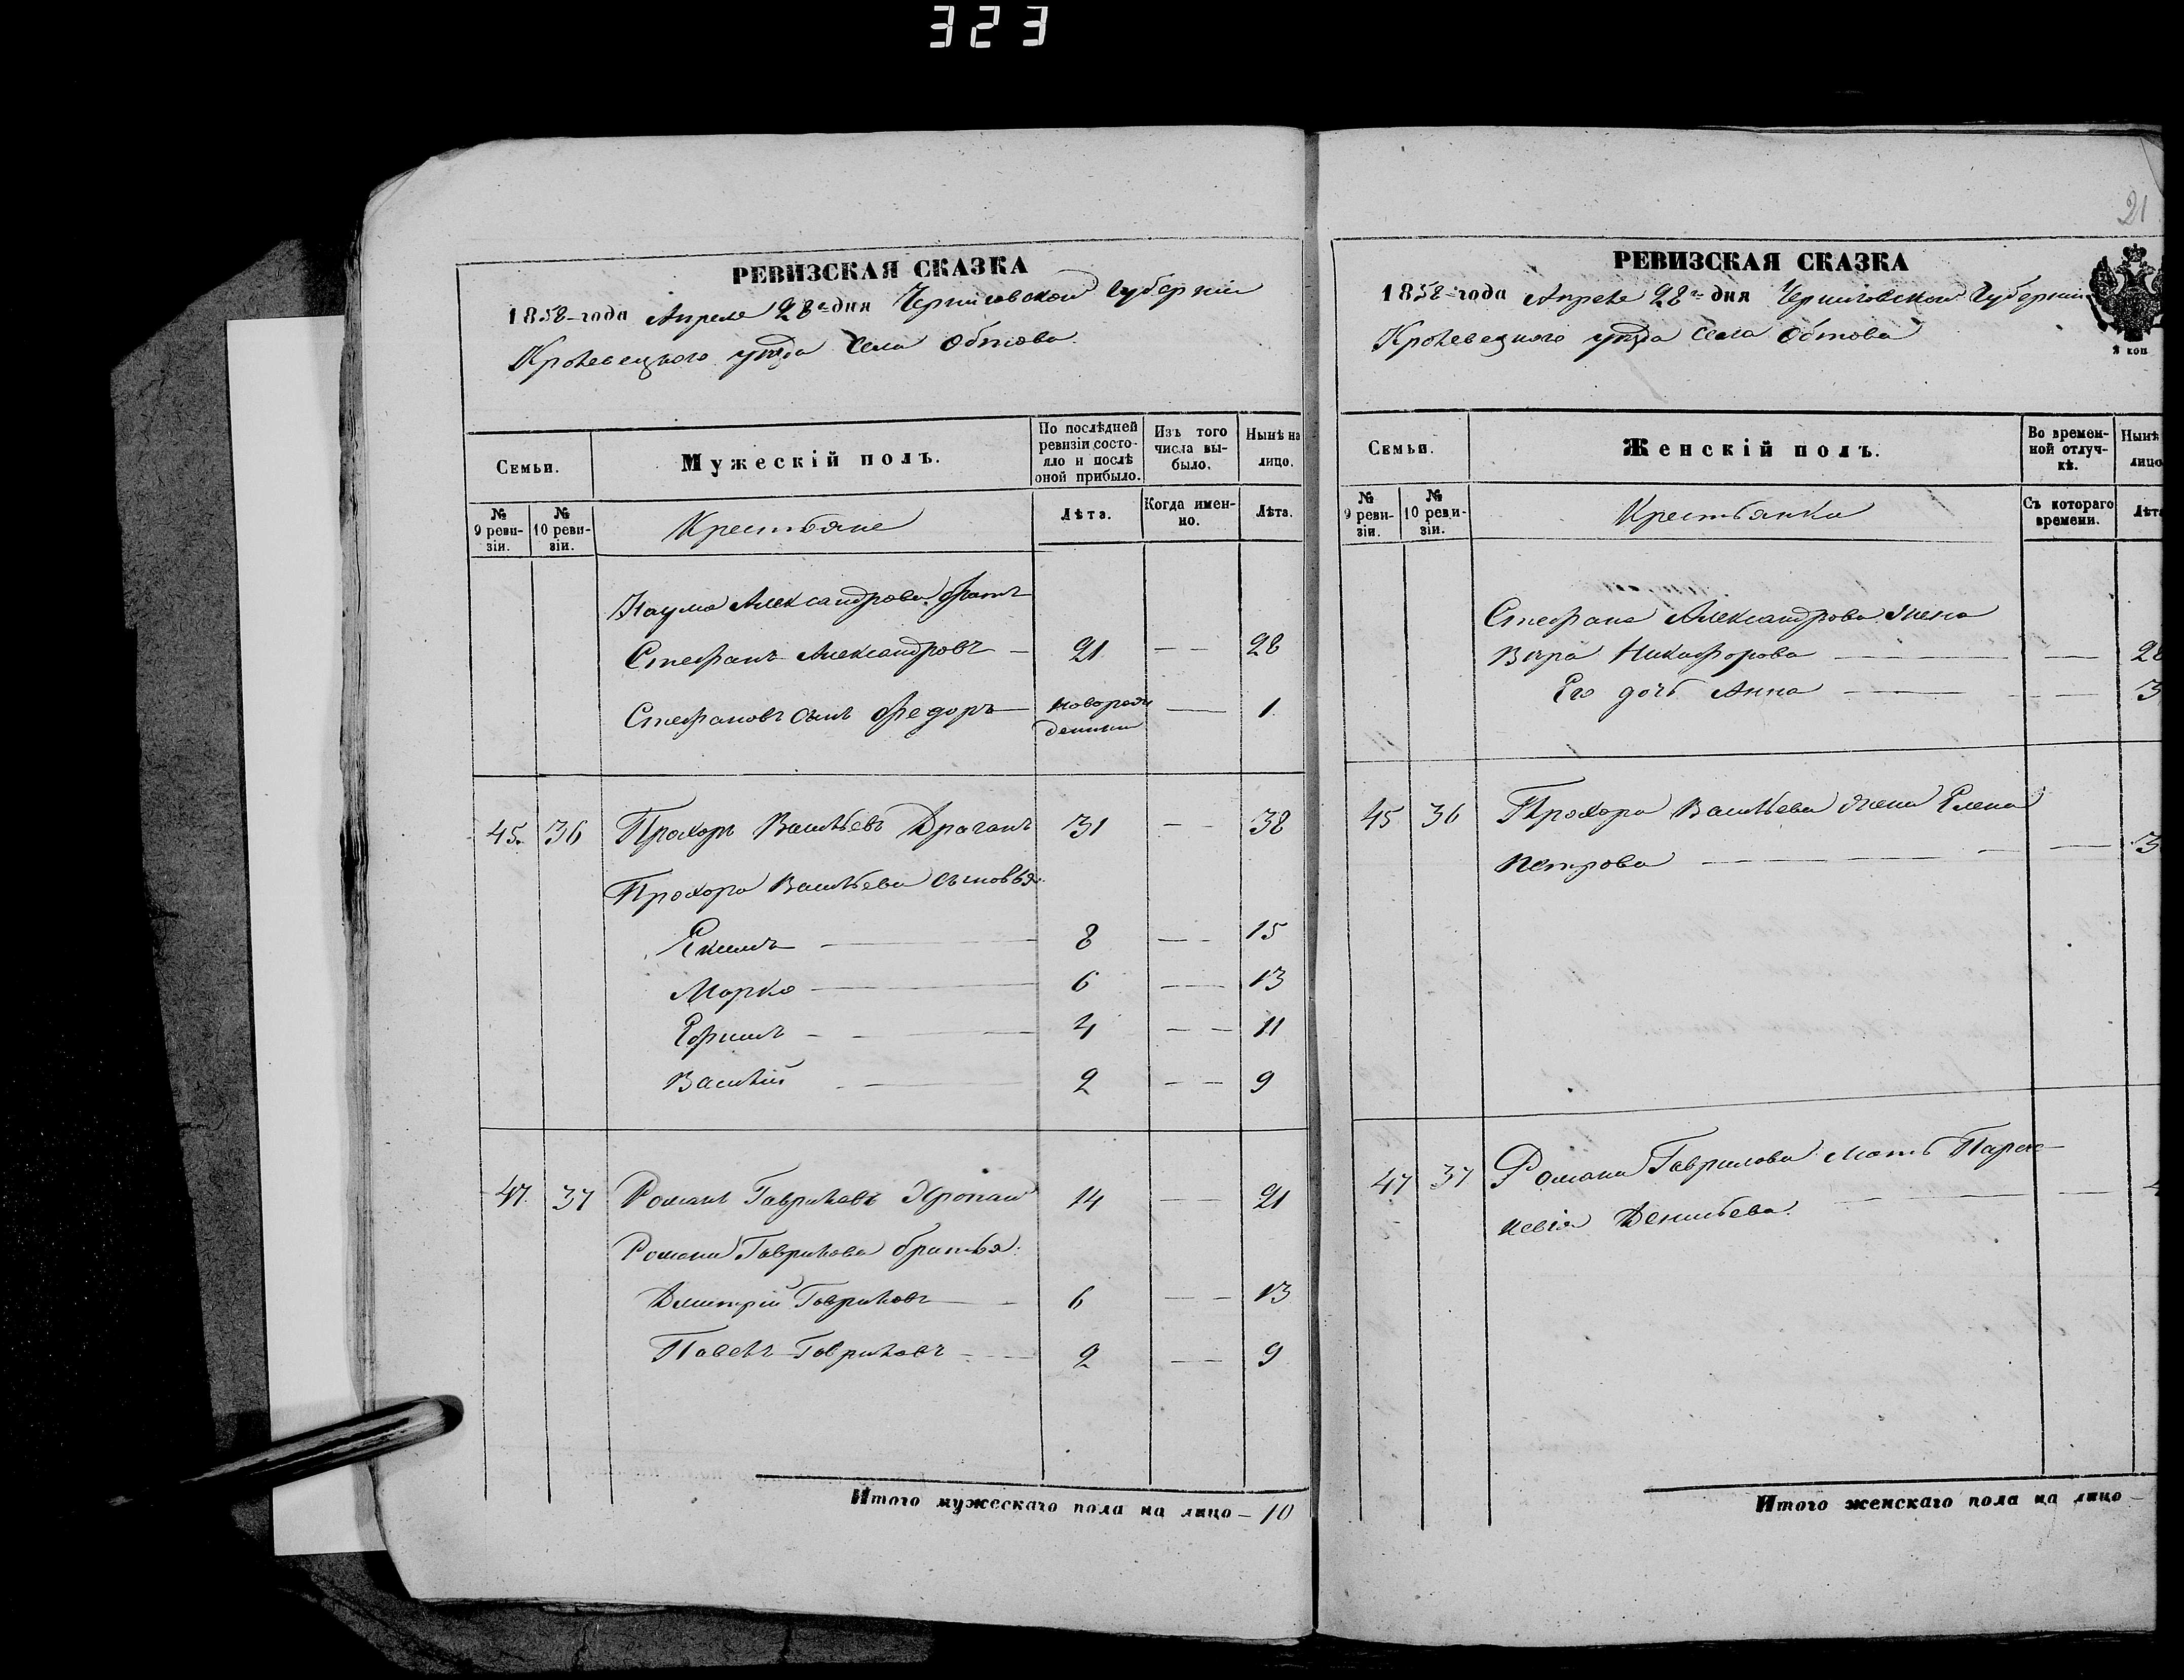 323
РЕВИЗСКАЯ СКАЗКА
1858 года Апреля 28 дня Черниговской Губерніи
Кролевецкого уезда Села Обтова
Семьи.
Мужескій полъ.
По послѣдней ревизіи состояло и послѣ оной прибыло.
Изъ того числа выбыло.
Нынѣ на лицо.
№ 9 ревизіи.
№ 10 ревизіи.
Крестьяне
Лѣта.
Когда именно.
Лѣта.
Наума Александрова братъ
Стефанъ Александровъ 21 — — 28
Стефановъ сынъ Федоръ новорож денный — 1
45. 36 Прохоръ Васильевъ Драганъ 31 — — 38
Прохора Васильева сыновья:
Екимъ — 8 — — 15
Марко — 6 — — 13
Ефимъ — 4 — — 11
Василій — 2 — — 9
47. 37 Романъ Гавриловъ 14 — 21
Романа Гаврилова братья:
Дмитрій Гавриловъ — 6 — — 13
Павелъ Гавриловъ — 2 — — 9
Итого мужескаго пола на лицо — 10
21
РЕВИЗСКАЯ СКАЗКА
1858 года Апреля 28 дня Черниговской Губерніи
Кролевецкого уезда Села Обтова
2 коп
Семьи.
Женскій полъ.
Во временной отлучкѣ.
Нынѣ лицо
№ 9 ревизіи.
№ 10 ревизіи.
Крестьянки
Съ котораго времени.
Лѣта
Стефана Александрова жена
Вера Никифорова — — 28
Его дочь Анна — — 3
45 36 Прохора Васильева жена Елена
Петрова — — 3
47 37 Романа Гаврилова мать Парас-
кевія Демьянова — —
Итого женскаго пола на лицо —